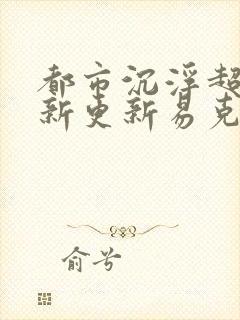 都市沉浮超
新更新易克
俞兮